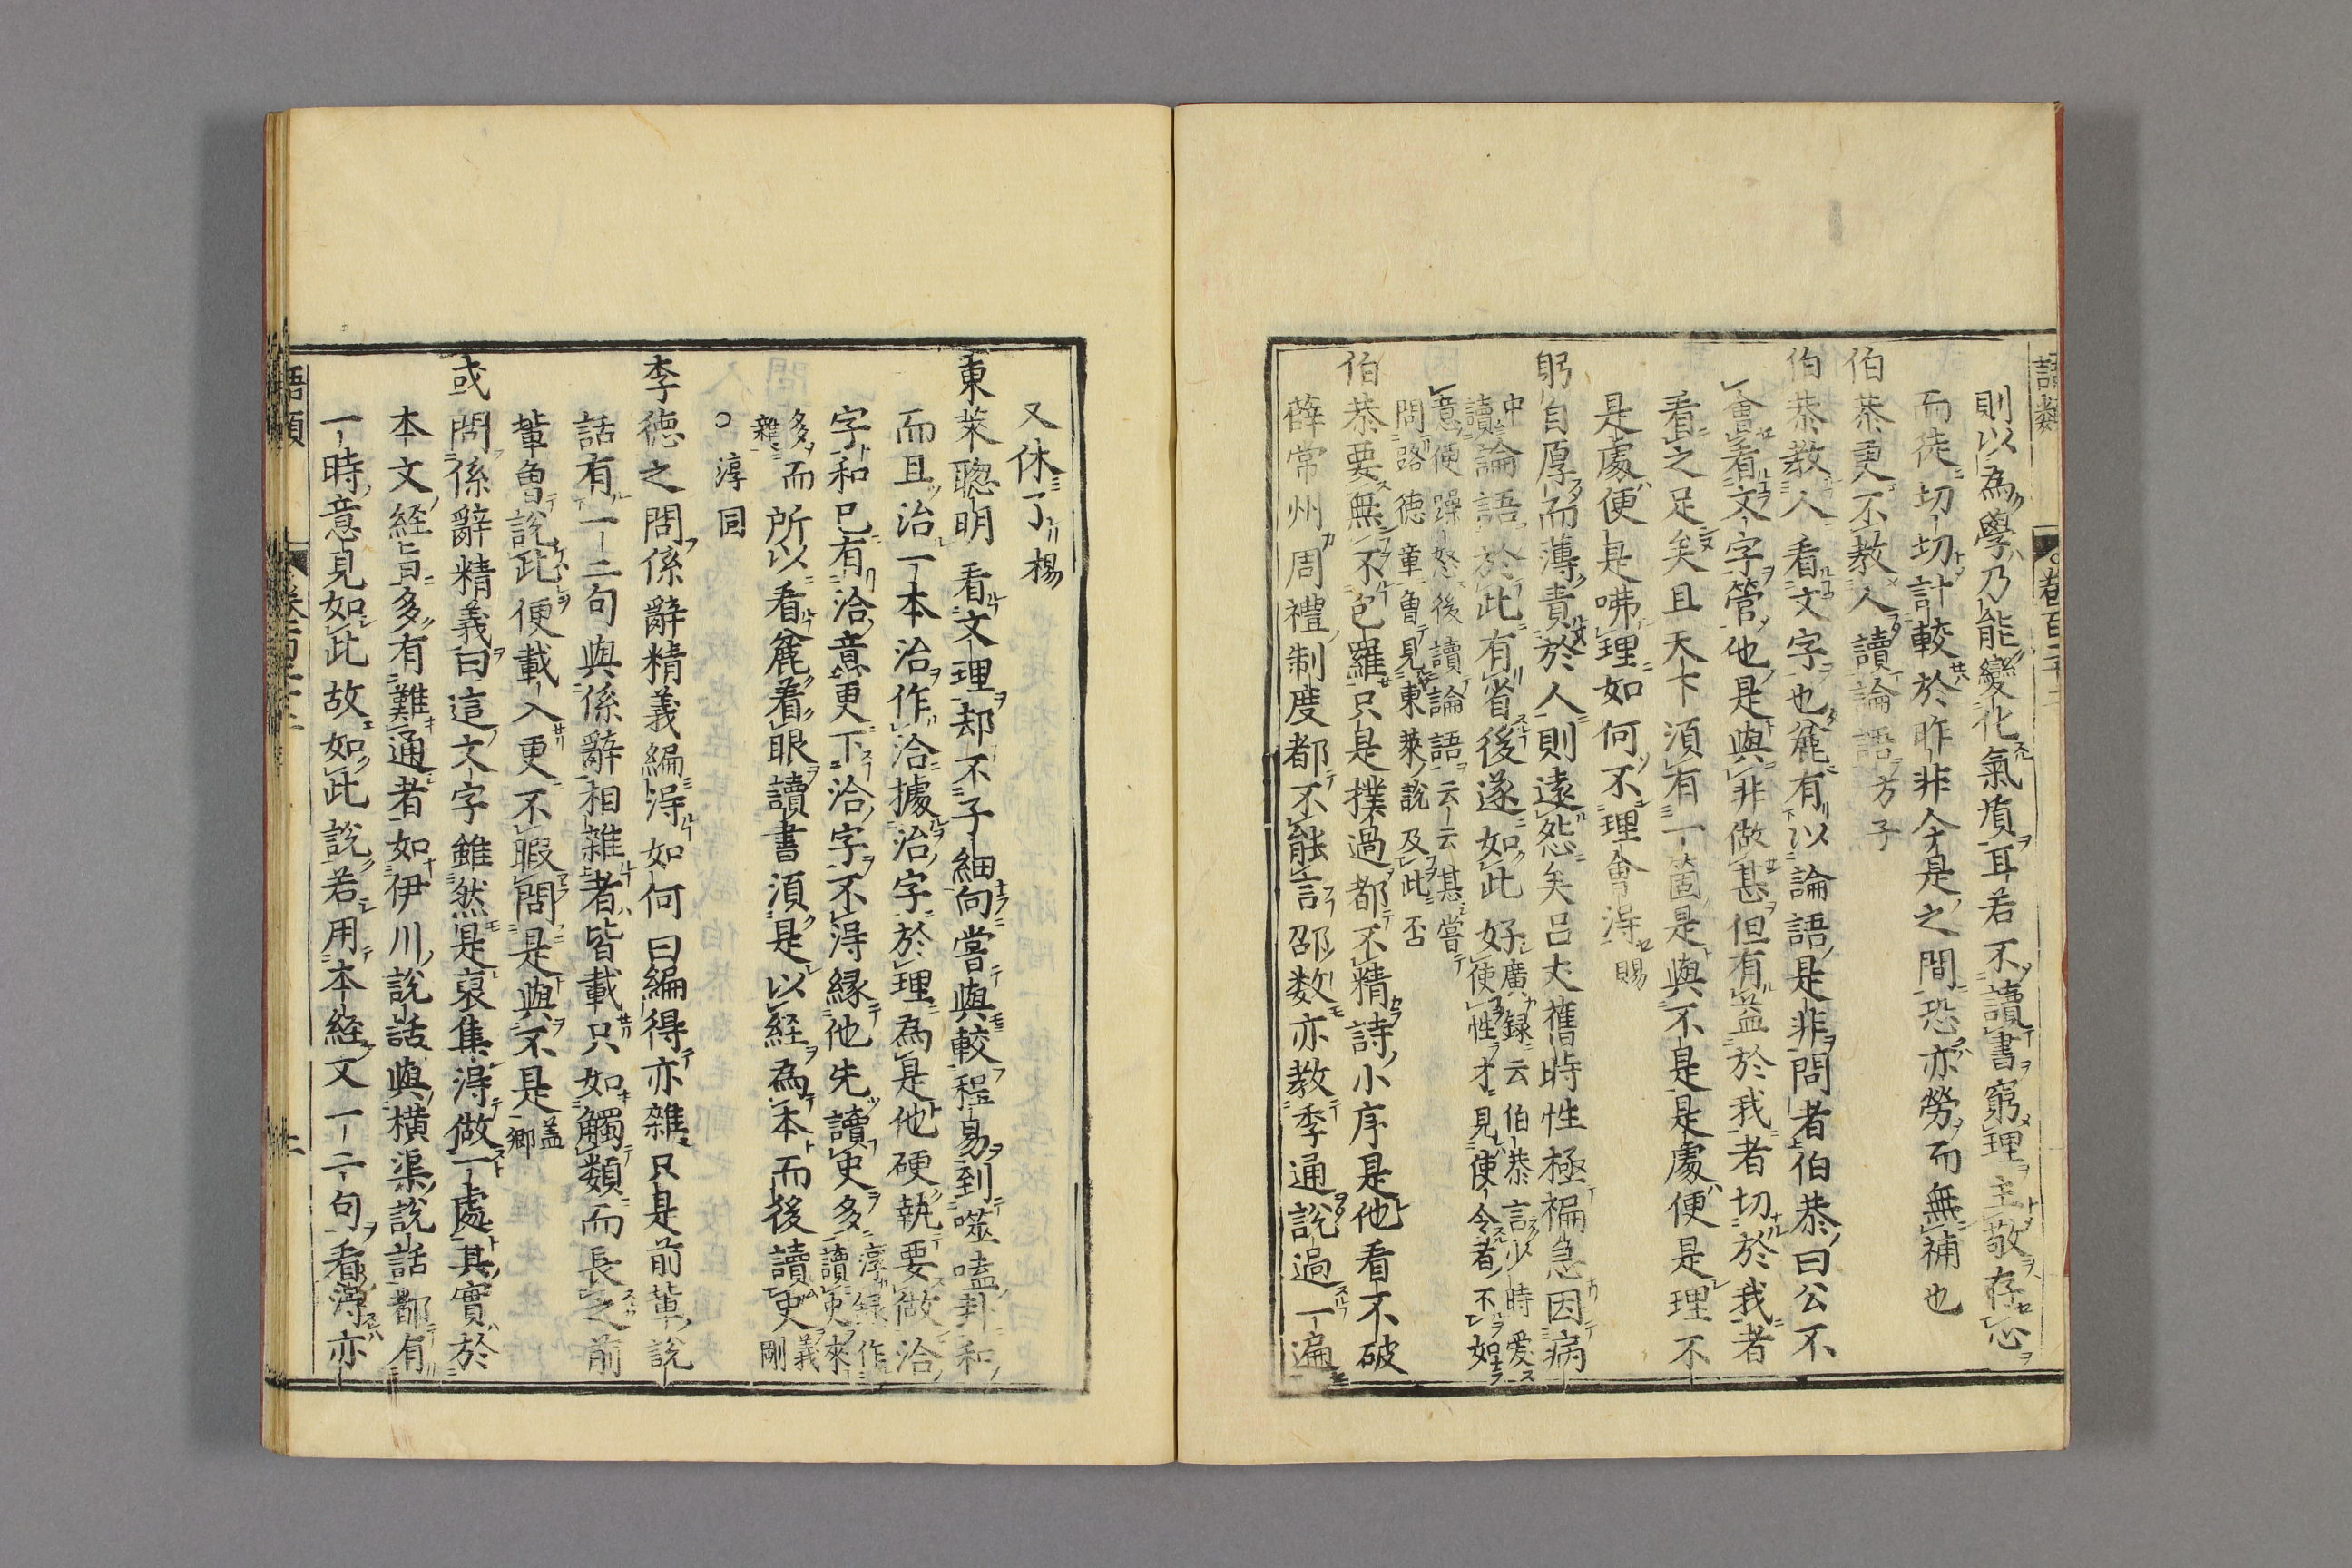 則以為學乃能變化氣質耳若不讀書窮理主敬存心
而徒切切計較於昨非今是之間恐亦勞而無補也
伯恭更不教人讀論語方子
伯恭教人看文字也麁有以論語是非問者伯恭曰公不
會看文字管他是與非做甚但有益於我者切於我者
看之足矣且天下須有一箇是與不是是處便是理不
是處便是咈理如何不理會得賜
躬自厚而薄責於人則遠怨矣呂丈舊時性極褊急因病
中讀論語於此有省後遂如此好廣録云伯恭言少時愛使性才見使令者不如
意便躁怒後讀論語云云甚嘗
問路德章曾見東萊說及此否
伯恭要無不包羅只是撲過都不精詩小序是他看不破
薛常州周禮制度都不能言邵数亦教季通說過一遍
又休了楊
東萊聰明看文理却不子細向嘗與較程易到噬嗑卦和
而且治一本治作洽據治字於理為是他硬執要做洽
字和已有洽意更下洽字不淂縁他先讀史多淳録作讀史來
多而雜所以看麁着眼讀書湏是以経為本而後讀史義剛
○淳同
李德之問係辭精義編淂如何曰編得亦雜只是前軰說
話有一二句與係辭相雜者皆載只如觸類而長之前
軰曽說此便載入更不暇問是與不是盖卿
或問係辭精義曰這文字雖然是裒集淂做一處其實於
本文経旨多有難通者如伊川說話與橫渠說話都有
一時意見如此故如此說若用本経文一二句看淂亦
語類